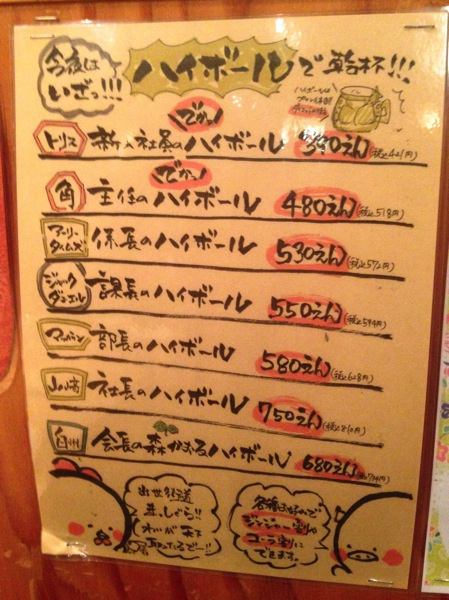 今夜は
いざっ!!!
ハイボールで乾杯!!!
ハイボールは
でかっ
トリス 新入社員のハイボール 390えん(税込421円)
でかっ
角 主任のハイボール 480えん(税込518円)
アーリータイムズ 係長のハイボール 530えん(税込572円)
ジャックダニエル 課長のハイボール 550えん(税込594円)
マッカラン 部長のハイボール 580えん(税込628円)
山崎 社長のハイボール 750えん(税込810円)
白州 会長の森かおるハイボール 680えん(税込734円)
出世街道
まっしぐら!!
わいが天下
取ったるでー!!
各種お好みで
ジンジャー割りや
コーラ割りに
できます。